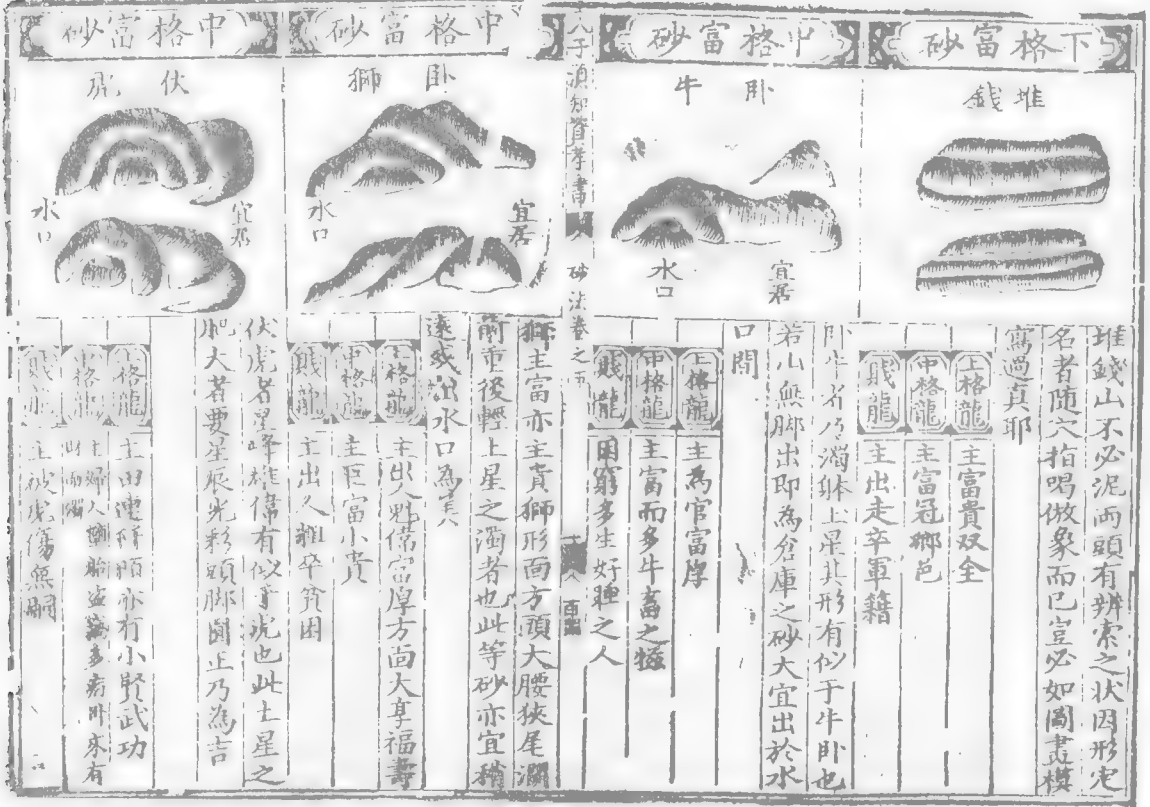 下格富砂
堆錢
堆錢山不必泥両頭有辨索之状因形宅
名者随穴指喝倣象而已豈必如圖畫模
寫過真耶
上格龍 主富貴双全
中格龍 主富冠鄉邑
賤龍 主出走卒軍籍
中格富砂
卧牛
水口
宜居
卧牛者乃濁躰土星其形有似于牛卧也
若山無脚出即為倉庫之砂大宜出於水
口間
上格龍 主為官富厚
中格龍 主富而多牛畜之
賤龍 困窮多生好睡之人
人子湏知資孝書
砂法卷之
中格富砂
卧獅
水口
宜居
獅主富亦主貴獅形面方頭大腰狹尾濶
前重後輕土星之濁者也此等砂亦宜稍
遠或出水口為
上格龍 主出人魁偉富厚方面大享福壽
中格龍 主巨富小貴
賤龍 主出人粗卒貧困
中格富砂
伏虎
水口
宜居
伏虎者星峰雄偉有似乎虎也此土星之
肥大者要星辰光彩頭脚圓正乃為吉
上格龍 主田連阡陌亦有小貴武功
中格龍 主婦人墮胎盜 多病外來有
財而濁
賤龍 主被虎傷無嗣